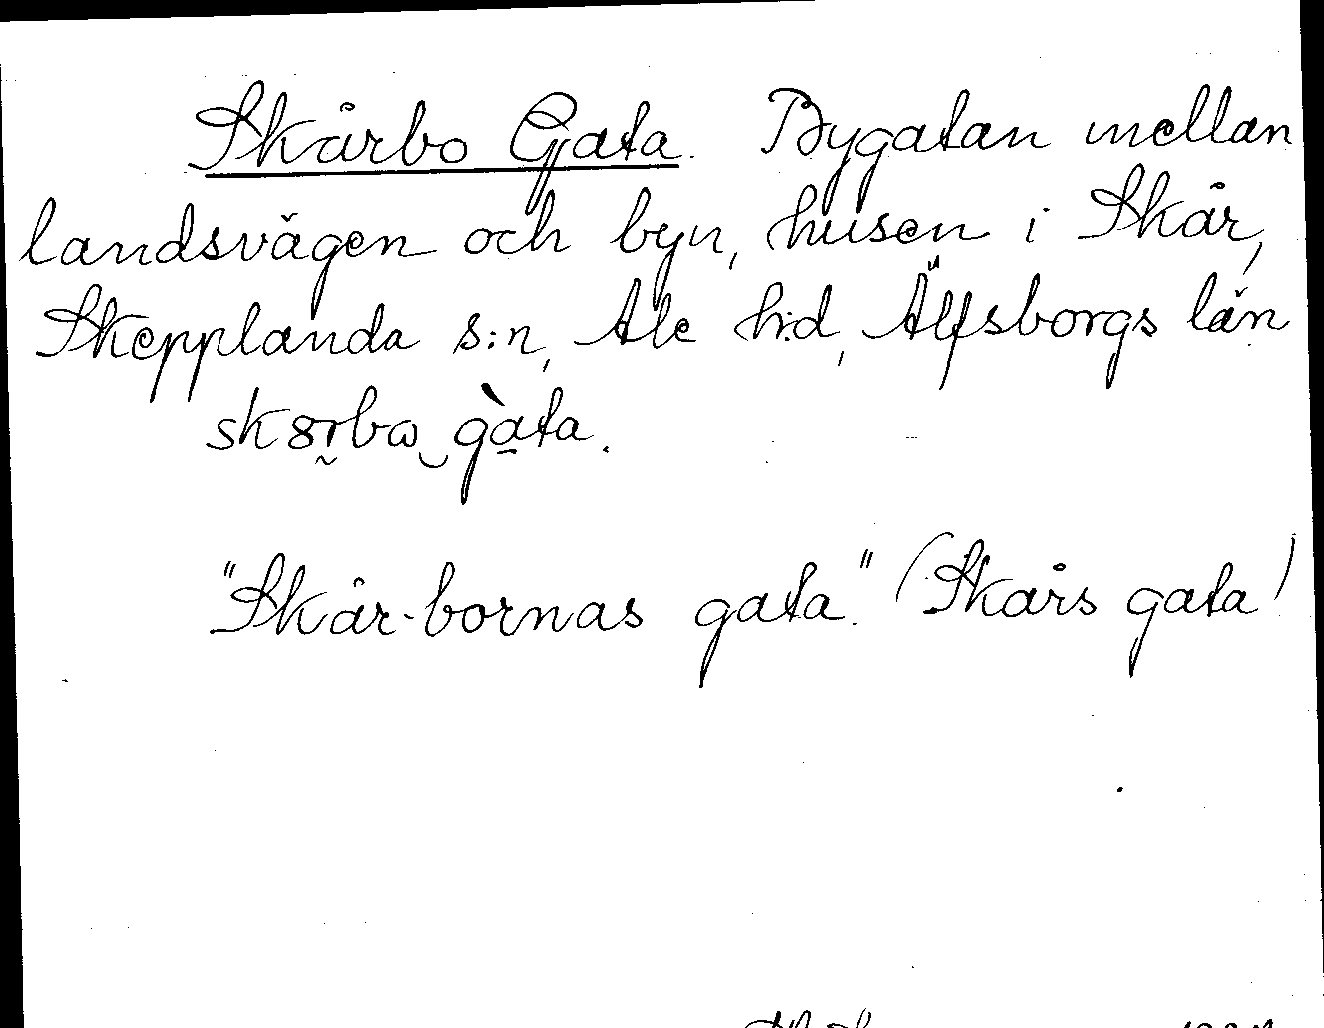 Skårbo Gata. Bygatan mellan
landsvägen och byn, husen i Skår,
Skepplanda s:n, Ale h:d, Älfsborgs län
sk8rbω gàta.
"Skår-bornas gata." (Skårs gata)